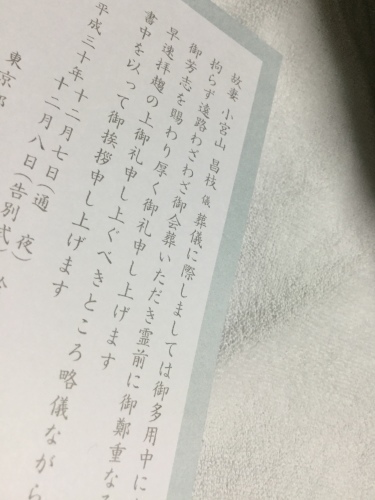 故妻 小宮山 昌枝 儀 葬儀に際しましては御多用中に
拘らず遠路わざわざ御会葬いただき霊前に御鄭重なる
御芳志を賜わり厚く御礼申し上げます
早速拝趨の上御礼申し上ぐべきところ略儀ながら
書中を以って御挨拶申し上げます
平成三十年十二月七日(通 夜)
十二月八日(告別式)
東京都